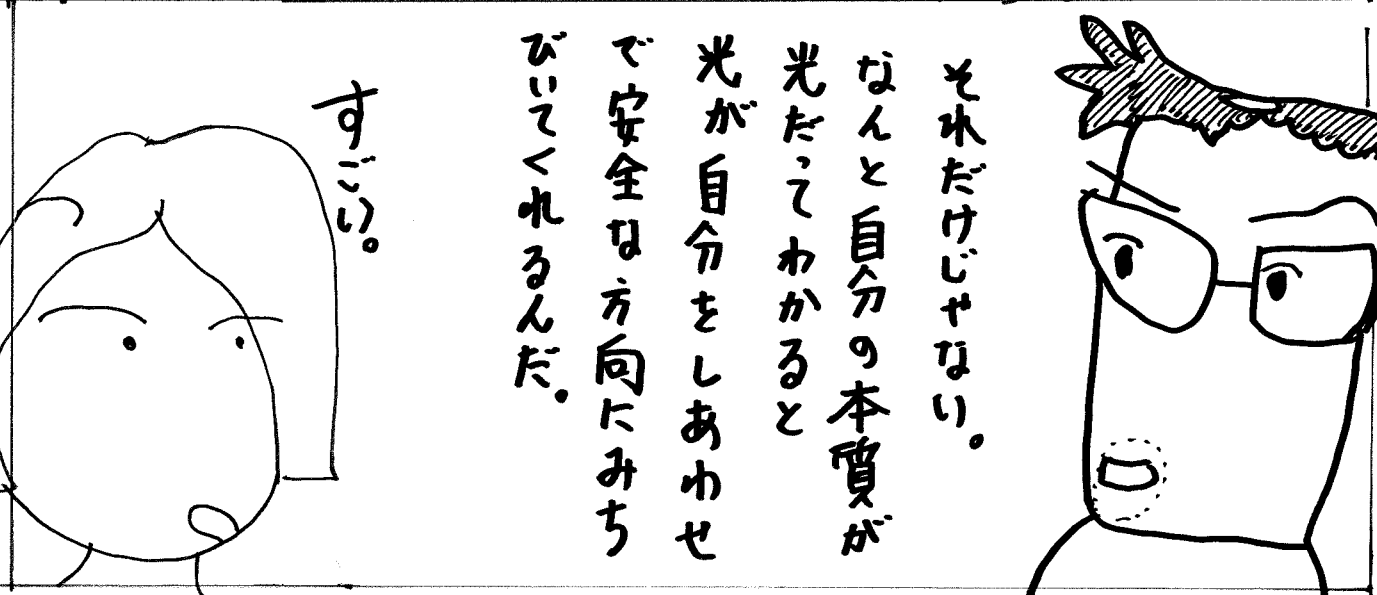 それだけじゃない。
なんと自分の本質が
光だってわかると
光が自分をしあわせ
で安全な方向にみち
びいてくれるんだ。
すごい。